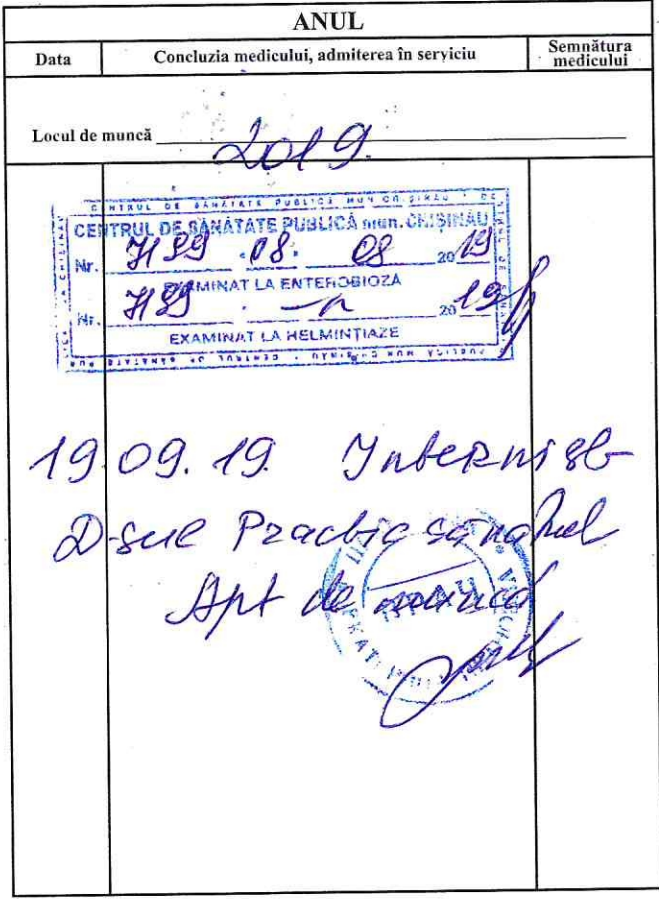 ANUL
Data
Concluzia medicului, admiterea în serviciu
Semnătura medicului
Locul de muncă
2019.
CENTRUL DE SĂNĂTATE PUBLICĂ mun. CHIȘINĂU
Nr. 08. 08 2019
EXAMINAT LA ENTEROBIOZĂ
Nr. 2019
EXAMINAT LA HELMINȚIAZE
19.09.19. Internist
D-sue Practic sănatul
Apt de muncă